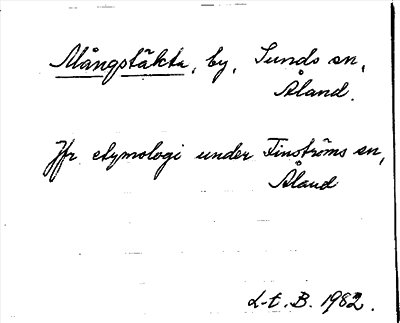 Mångstäkta, by, Sunds sn,
Åland.
Jfr etymologi under Finströms sn,
Åland
L-t. B. 1982.